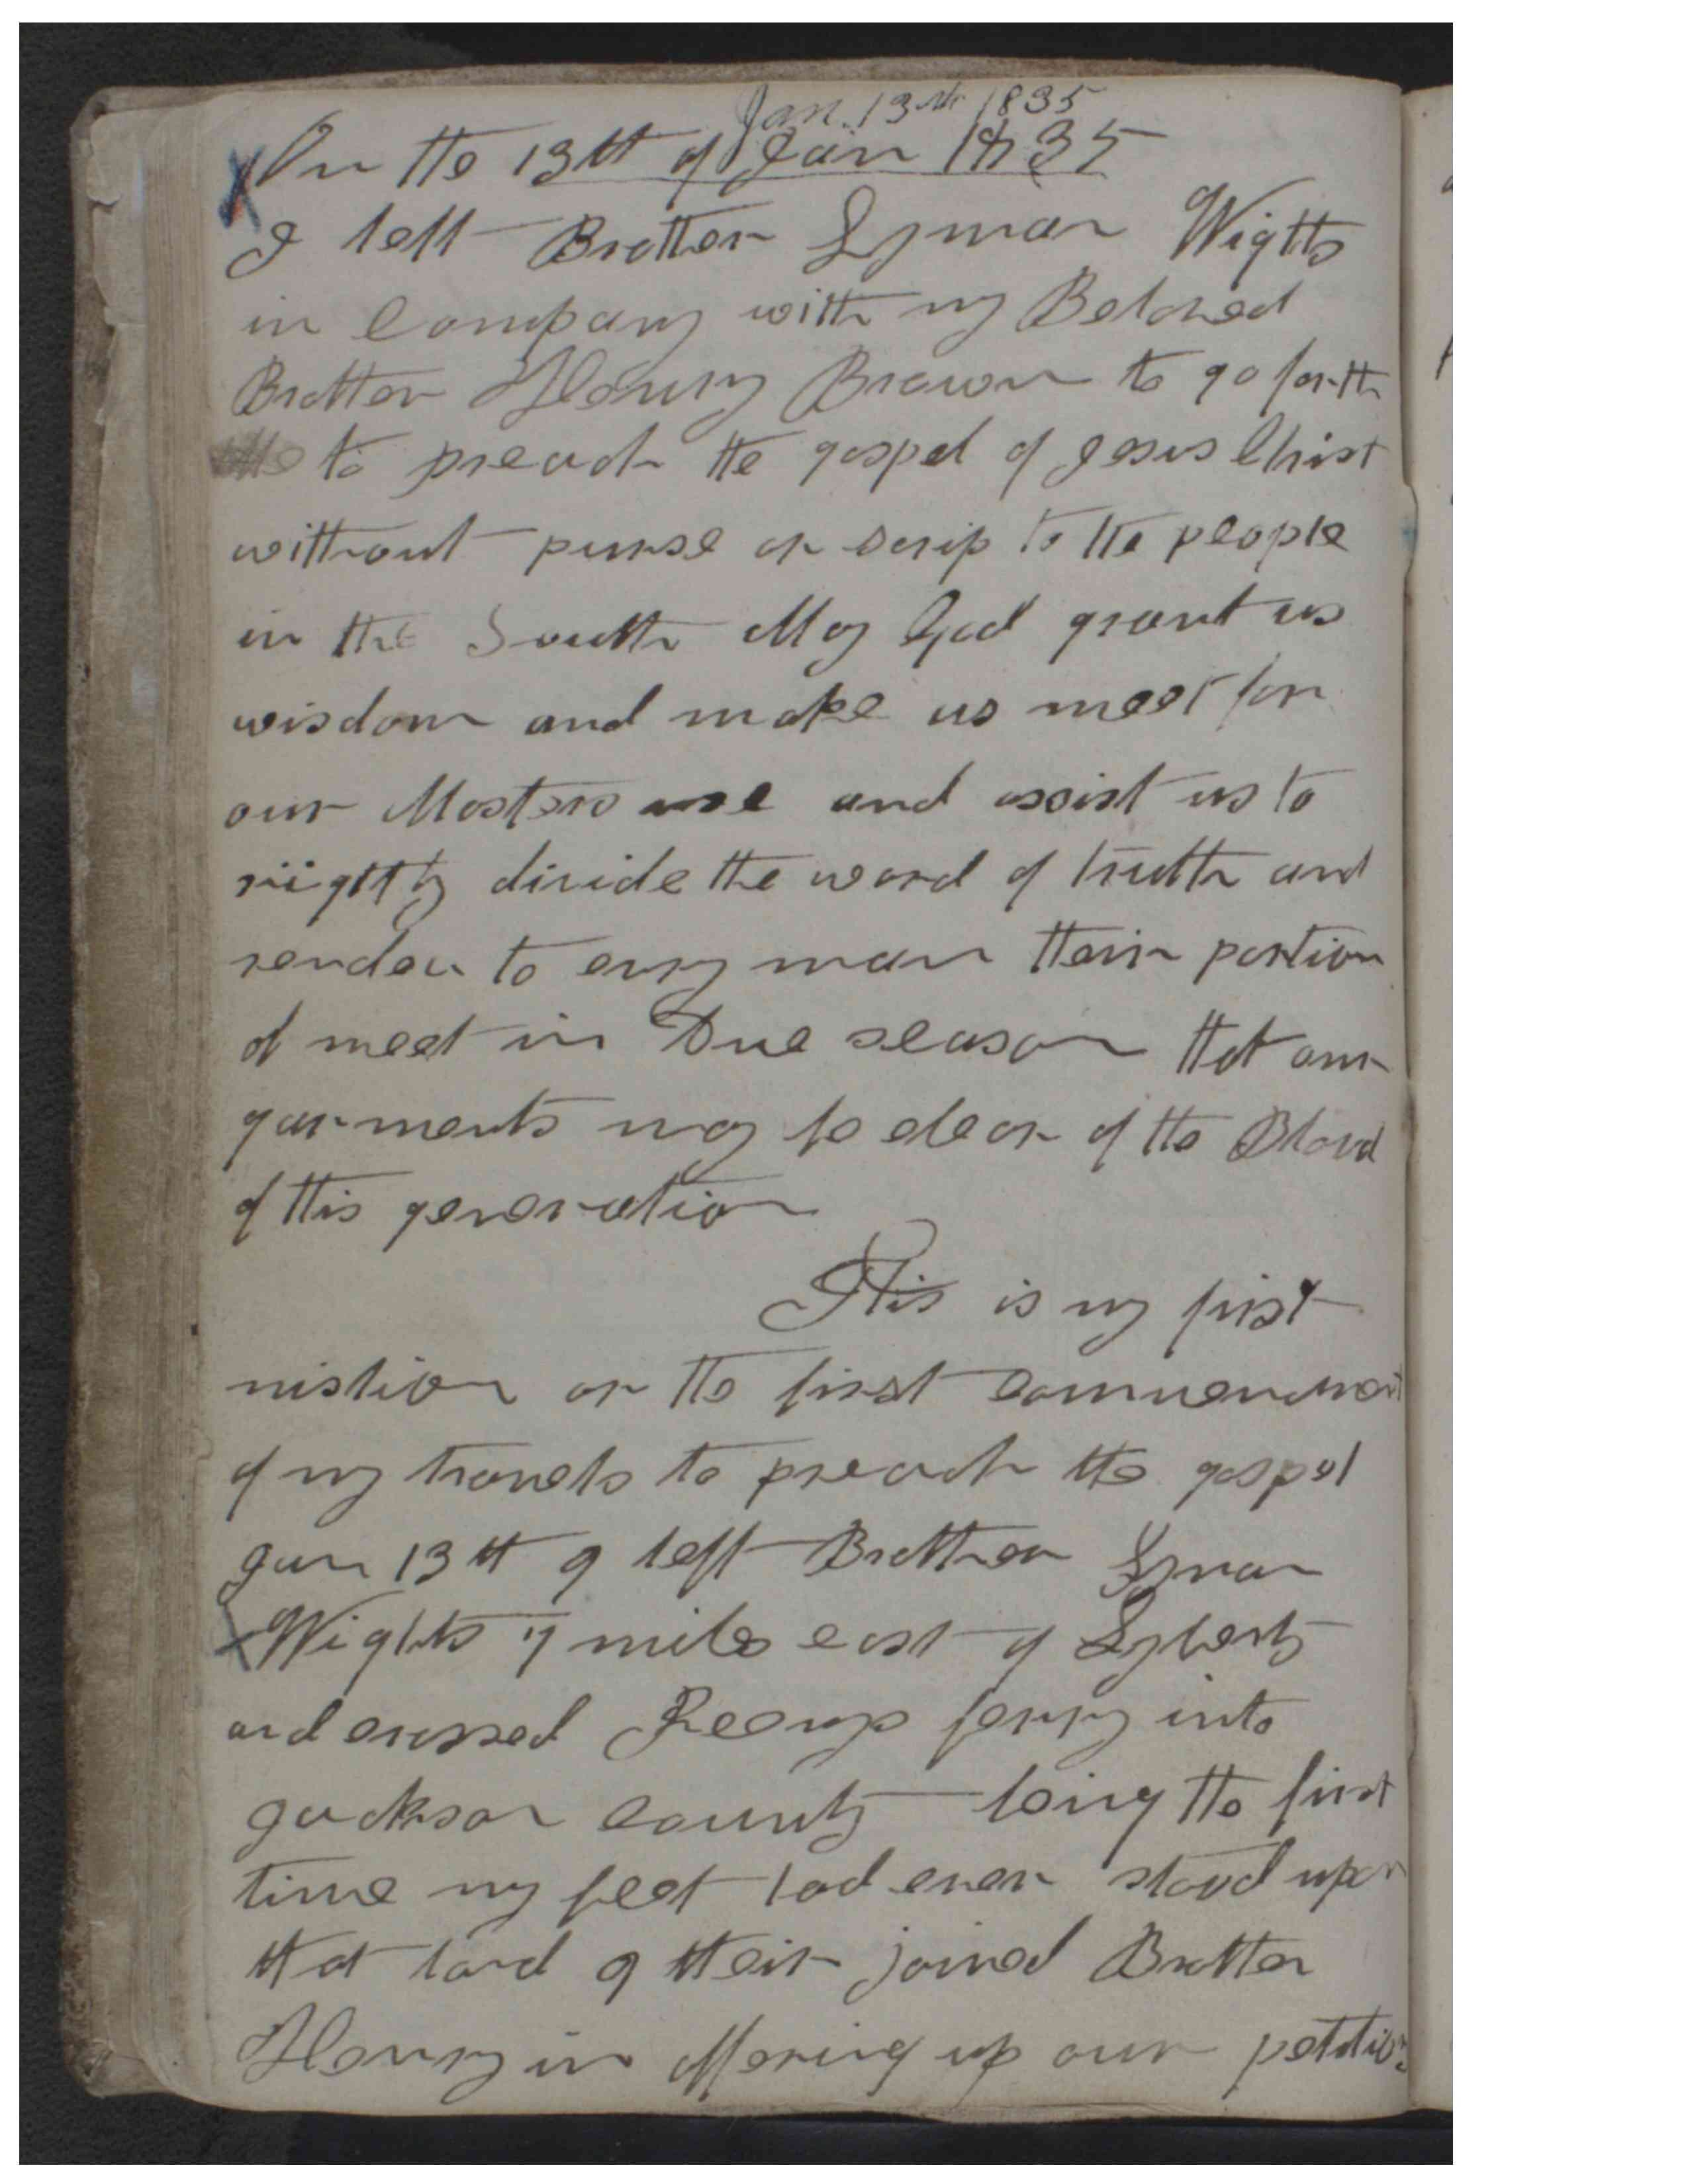 Jan. 13th 1835
On the 13th of Jan 1835
I left Brother Lyman Wights
in Company with my Beloved
Brother Henry Brown to go forth
to preach the gospel of Jesus Christ
without purse or scrip to the people
in the South May God grant us
wisdom and make us meet for
our Masters use and assist us to
riightly divide the word of truth and
render to evry man their portion
of meet in Due season that our
garments may be clear of the Blood
of this generation
This is my first
mistion or the first commencment
of my travels to preach the gospel
Jan 13th I left Brother Lyman
Wights 7 mile east of Lyberty
and crossed ferry into
Jackson County being the first
time my feet had ever stood upon
that land I their joined Brother
Henry in offering up our petitions